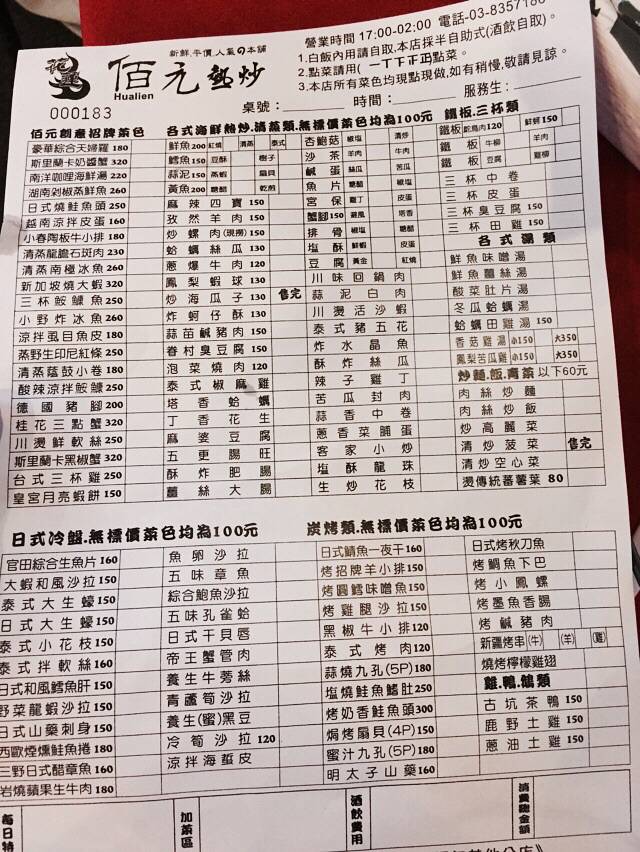 新鮮.平價.人氣の本舖
花蓮
佰元熱炒
Hualien
000183
營業時間 17:00-02:00 電話-03-8357186
1.白飯內用請自取,本店採半自助式(酒飲自取)。
2.點菜請用(一丅下正正)點菜。
3.本店所有菜色均現點現做,如有稍慢,敬請見諒。
桌號：
時間：
服務生：
佰元創意招牌菜色
豪華綜合天婦羅 180
斯里蘭卡奶醬蟹 320
南洋咖哩海鮮湯 220
湖南剁椒蒸鮮魚 260
日式燒鮭魚頭 250
越南涼拌皮蛋 160
小春陶板牛小排 180
清蒸龍膽石斑肉 230
清蒸南極冰魚 260
新加坡燒大蝦 320
三杯鮟鱇魚 250
小野炸冰魚 260
涼拌虱目魚皮 180
蒸野生印尼紅條 250
清蒸蒜鼓小卷 180
酸辣涼拌鮟鱇 250
德國豬腳 200
桂花三點蟹 320
川燙鮮軟絲 250
斯里蘭卡黑椒蟹 320
台式三杯雞 250
皇宮月亮蝦餅 150
各式海鮮熱炒.清蒸類.無標價菜色均為100元
鮮魚 200 紅燒 清蒸 泰式
鱈魚 150 豆酥 樹子
蒜泥 150 蒸蝦 扇貝
黃魚 200 糖醋 乾煎
麻辣四寶 150
孜然羊肉 150
炒螺肉(現撈) 150
蛤蠣絲瓜 130
蔥爆牛肉 120
鳳梨蝦球 130
炒海瓜子 130 售完
炸蚵仔酥 130
蒜苗鹹豬肉 150
眷村臭豆腐 150
泡菜燒肉 120
泰式椒麻雞
塔香蛤蠣
丁香花生
麻婆豆腐
五更腸旺
酥炸肥腸
薑絲大腸
杏鮑菇 椒塩 清炒
沙茶 羊肉 牛肉
鹹蛋 絲瓜 苦瓜
魚片 糖醋 椒塩
宮保 雞丁 皮蛋
蟹腳 150 避風 塔香
排骨 椒塩 糖醋
塩酥 鮮蝦 皮蛋
豆腐 黃金 紅燒
川味回鍋肉
蒜泥白肉
川燙活沙蝦
泰式豬五花
炸水晶魚
酥炸絲瓜
辣子雞丁
苦瓜封肉
蒜香中卷
蔥香菜脯蛋
客家小炒
塩酥龍珠
生炒花枝
鐵板.三杯類
鐵板 鴕鳥肉120 鮮蚵150
鐵板 牛柳 羊肉
鐵板 豆腐 雞柳
三杯中卷
三杯皮蛋
三杯臭豆腐 150
三杯田雞 150
各式湯類
鮮魚味噌湯
鮮魚薑絲湯
酸菜肚片湯
冬瓜蛤蠣湯
蛤蠣田雞湯 150
香菇雞湯 小150 大350
鳳梨苦瓜雞 小150 大350
炒麵.飯.青菜 以下60元
肉絲炒麵
肉絲炒飯
炒高麗菜
清炒菠菜 售完
清炒空心菜
燙傳統蕃薯葉 80
日式冷盤.無標價菜色均為100元
官田綜合生魚片 160
大蝦和風沙拉 150
泰式大生蠔 150
日式大生蠔 150
泰式小花枝 150
泰式拌軟絲 160
日式和風鱈魚肝 150
野菜龍蝦沙拉 150
日式山藥刺身 150
西歐煙燻鮭魚捲 180
三野日式醋章魚 160
岩燒蘋果生牛肉 180
魚卵沙拉
五味章魚
綜合鮑魚沙拉
五味孔雀蛤
日式干貝唇
帝王蟹管肉
養生牛蒡絲
青蘆筍沙拉
養生(蜜)黑豆
冷筍沙拉 120
涼拌海蜇皮
炭烤類.無標價菜色均為100元
日式鯖魚一夜干 160
烤招牌羊小排 150
烤圓鱈味噌魚 150
烤雞腿沙拉 150
黑椒牛小排 120
泰式烤肉 120
蒜燒九孔(5P) 180
塩燒鮭魚鰭肚 250
烤奶香鮭魚頭 300
焗烤扇貝(4P) 150
蜜汁九孔(5P) 180
明太子山藥 160
日式烤秋刀魚
烤鯛魚下巴
烤小鳳螺
烤墨魚香腸
烤鹹豬肉
新疆烤串(牛) (羊) (雞)
燒烤檸檬雞翅
雞.鴨.鵝類
古坑茶鴨 150
鹿野土雞 150
蔥油土雞 150
每日特
加菜區
酒飲費用
消費總金額